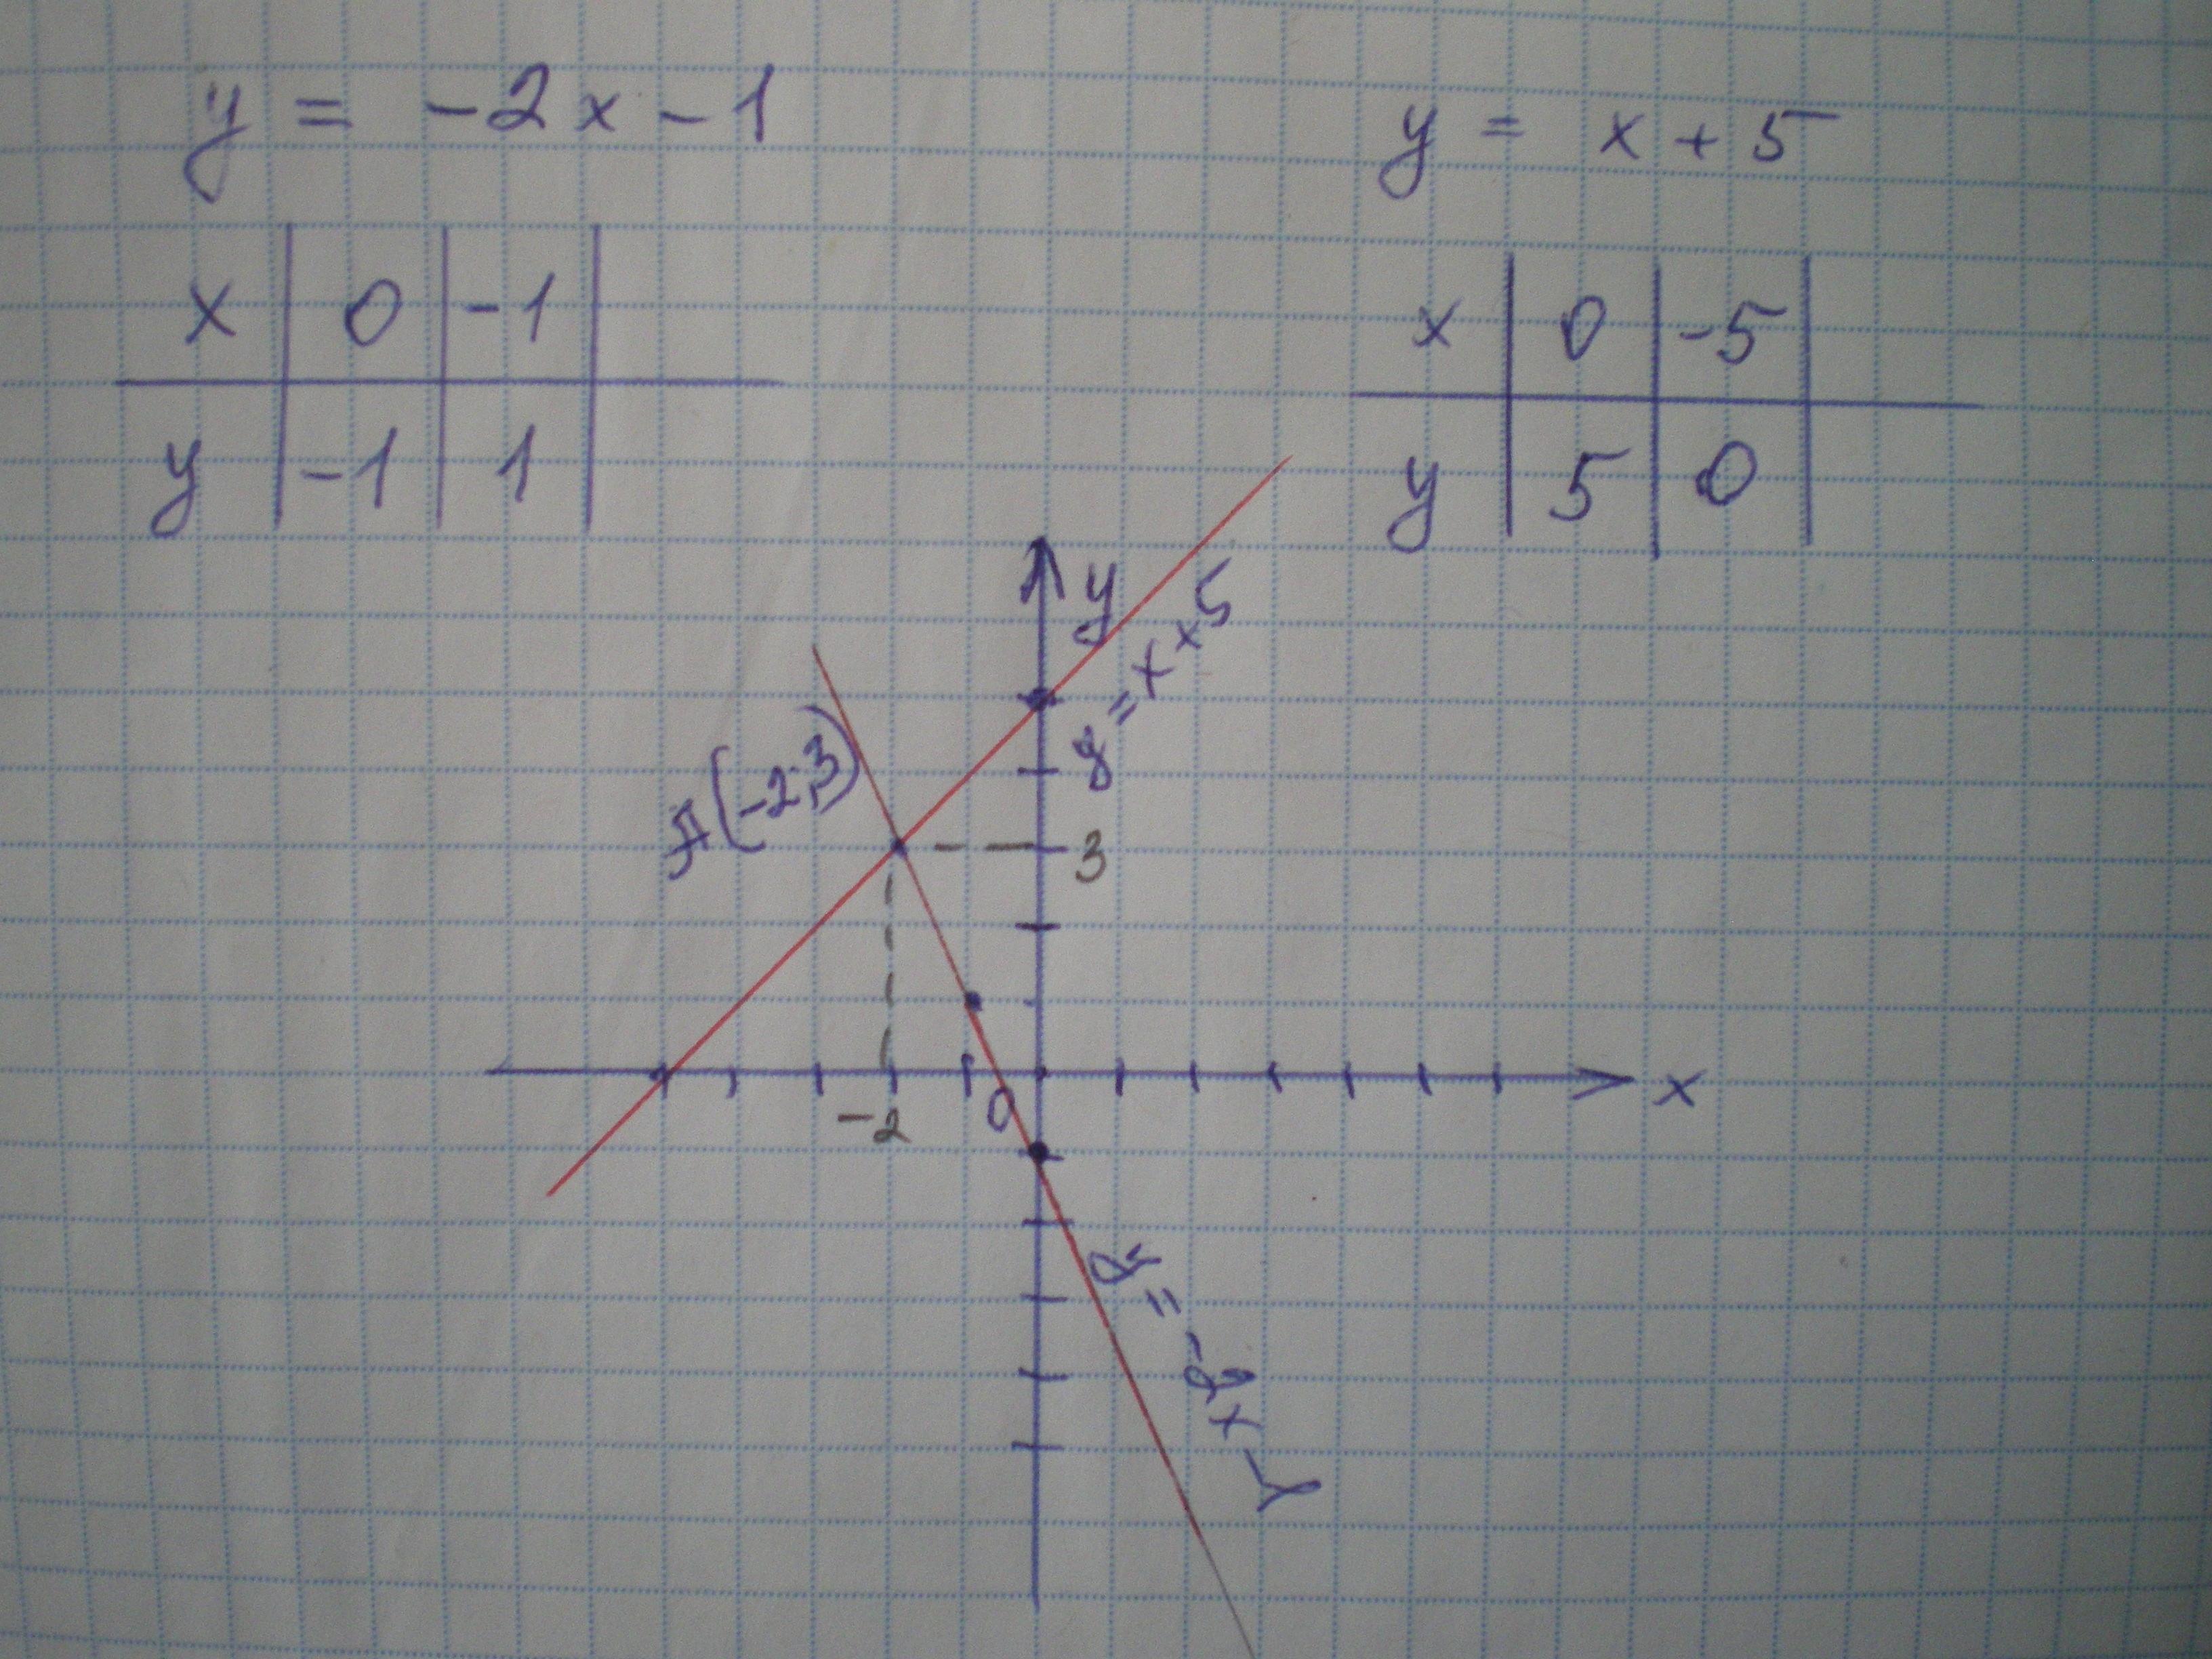 y = -2x - 1
x 0 -1
y -1 1
y = x + 5
x 0 -5
y 5 0
y
y = x + 5
A(-2;3)
3
x
-2
0
y = -2x - 1